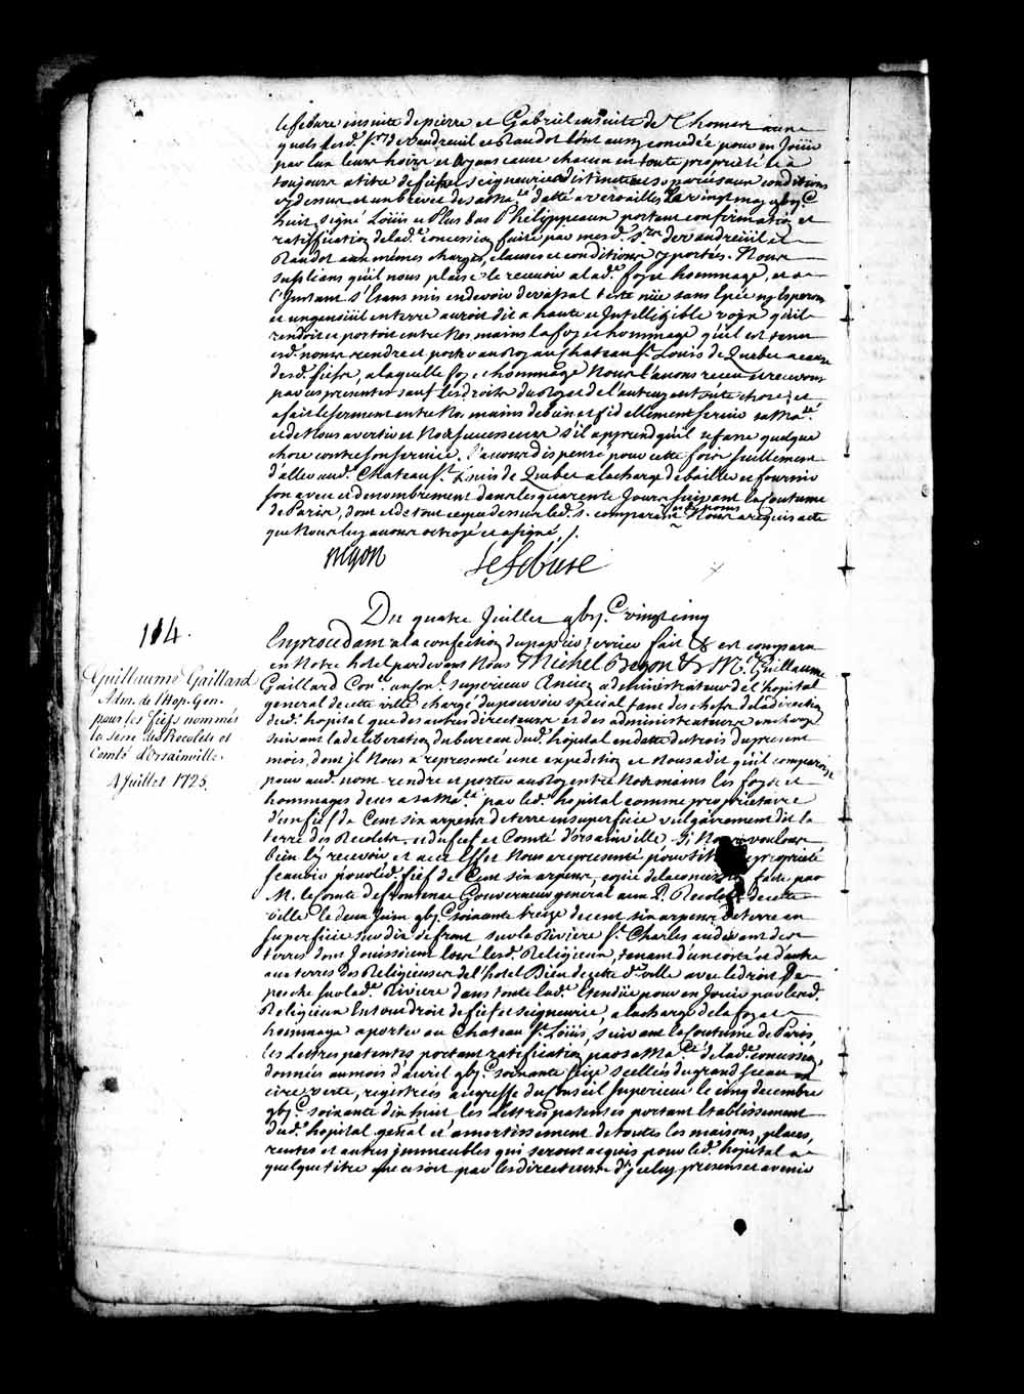 lefebure ensuite de pierre et Gabriel ensuite de Thomas aux
quels lesd. srs de Vaudreuil et Raudot l'ont aussy concedée pour en Jöüir
par Eux leurs hoirs et ayans cause chacun en toute propriété et a
toujours a titre de fiefs et seigneuries distinctes et separées aux conditions
cy dessus et un brevet de sa Ma.té datté a versailles Le vingt may gbij.C
huit signé Loüis et Plus bas Phelippeaux portant confirmatiõn et
ratification de lad.e concession faite par mesd. srs de vaudreüil et
Raudot aux mémes charges, clauses et conditions y portés. Nous
supliant qu'il nous plaise le recevoir a lad.e foy et hommage, et a
l'Instant s'Etant mis en devoir de vassal teste nüe sans Epée ny Esperons
et un genoüil en terre auroit dit a haute et Intelligible voix qu'il
rendoit et portoit entre Nos mains la foy et hommage qu'il est tenu
de nous rendre et porter au Roy au Chateau St. Loüis de Quebec a cause
desd. fiefs, a laquelle foy et hommage Nous l'avons receu et recevons
par ces presentes sauf les droits du Roy et de l'autruy en toute chose; et
a fait le serment entre Nos mains de bien et fidellement servir sa Ma.té
et de Nous avertir et Nos successeurs s'il apprend qu'il se fasse quelque
chose contre son service. L'avons dispensé pour cette fois seullement
d'aller aud. Chateau St. Loüis de Quebec a la charge de bailler et fournir
son aveu et denombrement dans les quarente Jours suivant la Coutume
de Paris, dont et de tout ce que dessus led. s. comparant Nous a requis acte
que Nous luy avons octroyé et a signé ./.
Begon Lefebure
Du quatre Juillet gbij.C vingt cinq
114.
Guillaume Gaillard
Adm. de l'Hop. Gen.
pour les fiefs nommés
la terre des Recolets et
Comté d'Orsainville.
4 Juillet 1725.
En procedant a la confection du papier terrier fait &c est comparu
en Notre hotel pardevant Nous Michel Begon &c M.e Guillaume
Gaillard Con.er au con.l superieur Ancien administrateur de l'hopital
general de cette ville chargé du pouvoir special tant des chefs de la direction
dud. hopital que des autres directeurs et des administrateurs en charge
suivant la deliberation du bureau dud. hopital en datte du trois du present
mois, dont il Nous a representé une expedition et Nous a dit qu'il comparoit
pour aud. nom rendre et porter au Roy entre Nos mains les foy et
hommages deües a sa Ma.té par led. hopital comme proprietaire
d'un fief de Cent six arpens de terre en superficie vulgairement dit la
terre des Recolets, et du fief et Comté d'orsainville. S'il Nous vouloir
bien l'y recevoir et a cet Effet Nous a representé pour titre de proprieté
scavoir pour led. fief de Cent six arpens, copie de la concession faite par
M. le Comte de frontenac Gouverneur general aux P. Recolets de cette
ville le deux Juin gbij.C soixante treize de cent six arpens de terre en
superficie sur dix de front sur la Riviere St. Charles audevant des
terres dont Jouissoient lors lesd. Religieux, tenant d'un côté et d'autre
aux terres des Religieuses de l'hotel Dieu de cette d.e ville avec le droit de
pesche sur lad.e Riviere dans toute lad.e Etendüe pour en Jouir par lesd.
Religieux En tout droit de fief et seigneurie, a la charge de la foy et
hommage a porter au Chateau St. Loüis, suivant la Coutume de Paris,
les Lettres patentes portant ratification par sa Ma.té de lad.e concession,
données au mois d'avril gbij.C soixante seize scellées du grand sceau
cire verte, registrées au greffe du Conseil superieur le cinq decembre
gbij.C soixante dix huit les Lettres patentes portant Etablissement
dud. hopital gen̄al et amortissement de toutes les maisons, places,
rentes et autres Immeubles qui seront acquis pour led. hopital a
quelque titre que ce soit par les directeurs d'yceluy presens et avenir